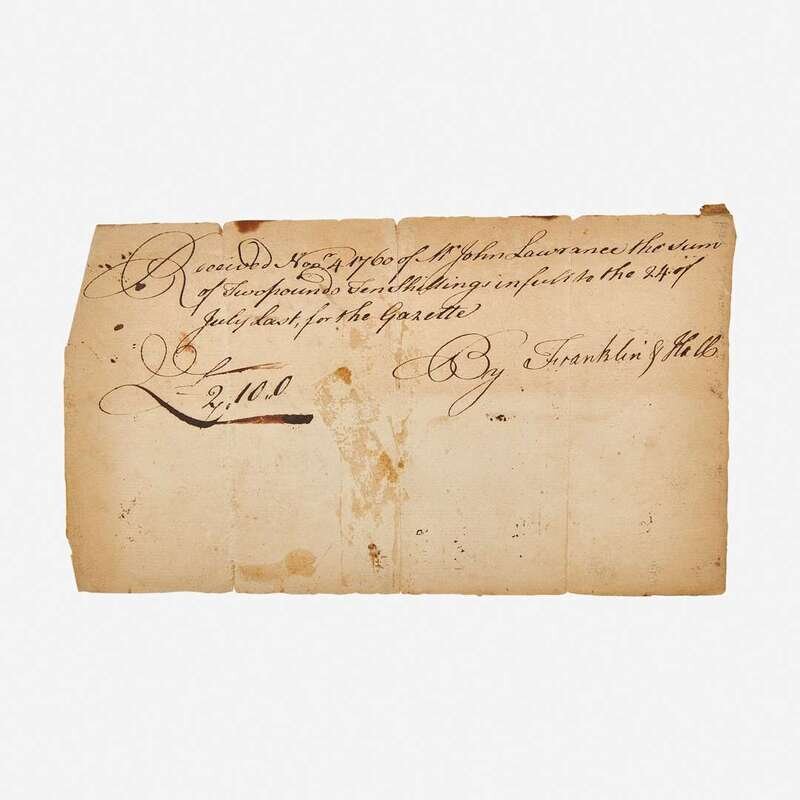 Received Novr. 4 1760 of Mr John Lawrance the sum
of Two pounds Ten Shillings in full to the 24 of
July Last, for the Gazette
£ 2,,10,,0
By Franklin & Hall